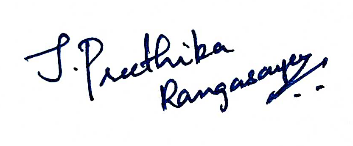 J. Preethika
Rangasayee